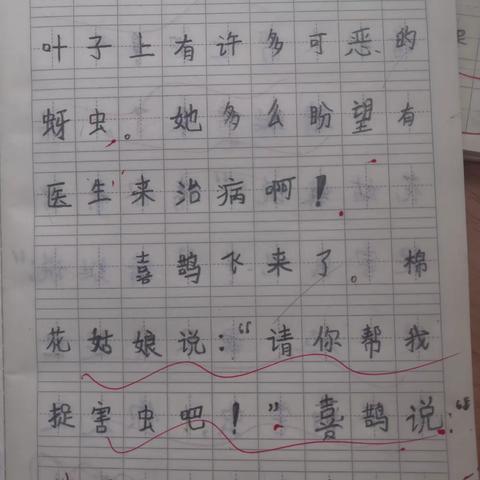 叶子上有许多可恶的
蚜虫。她多么盼望有
医生来治病啊！
喜鹊飞来了。棉
花姑娘说：“请你帮我
捉害虫吧！”喜鹊说：“